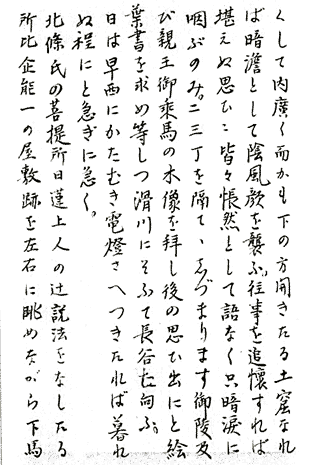 くして内廣く而かも下の方開きたる土窟なれ
ば暗澹として陰風顔を襲ふ、往事を追懐すれば
堪えぬ思ひに皆々悵然として語なく只暗涙に
咽ぶのみ。二三丁を隔てゝしづまります御陵及
び親王御乘馬の木像を拜し後の思ひ出にと絵
葉書を求め等しつ滑川にそふて長谷に向ふ。
日は早西にかたむき電燈さへつきたれば暮れ
ぬ程にと急ぎに急ぐ。
北條氏の菩提所日蓮上人の辻説法をなしたる
所比企能一の屋敷跡を左右に眺めながら下馬